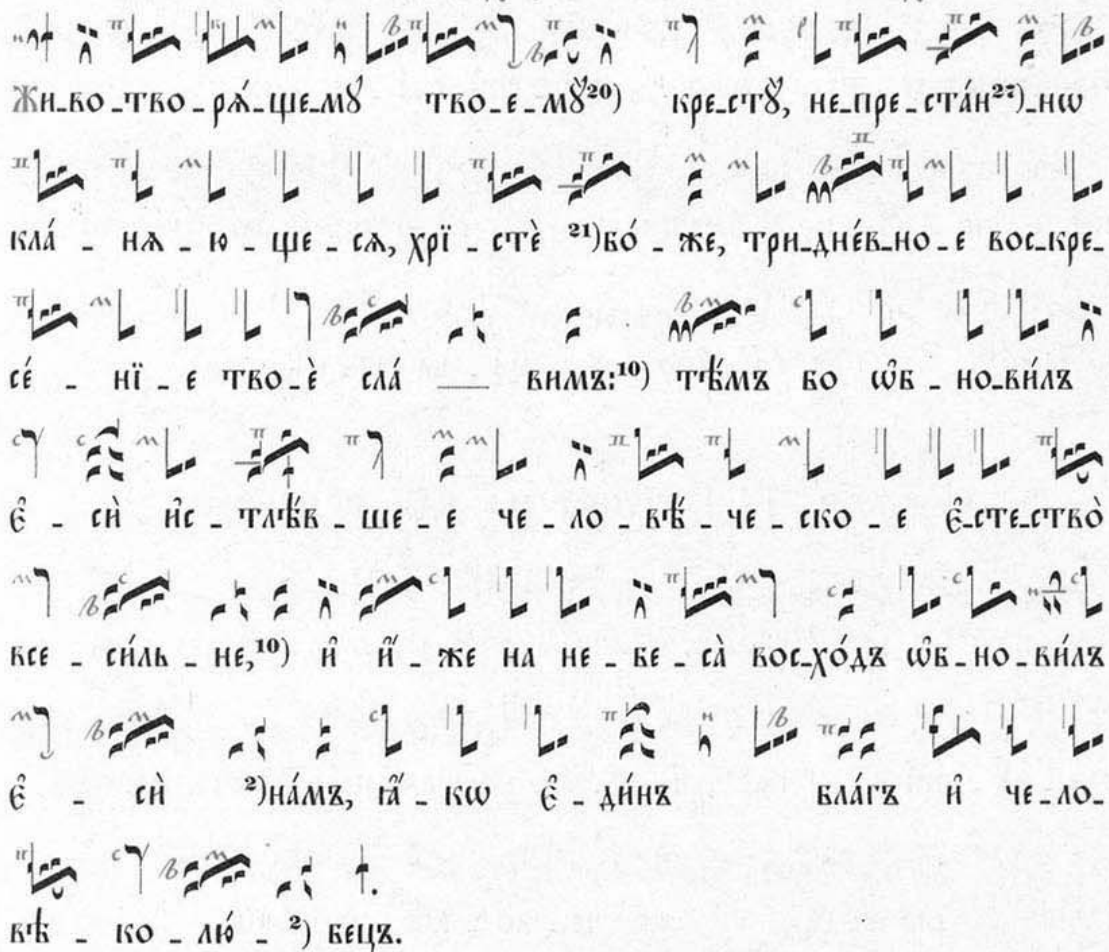 Жи-во-тво-рѧ́-ще-мꙋ тво-е-мꙋ̀²⁰) кре-стꙋ̀, не-пре-ста́н²⁷)-нѡ
кла́ - нѧ - ю - ще - сѧ, хрі - стѐ ²¹)бо́ - же, три-дне́в-но - е вос-кре-
се́ - нї - е тво-ѐ сла́ — вимъ:¹⁰) тѣ́мъ бо ѡ҆б - но-ви́лъ
є҆ - сѝ и҆с - тлѣ́в - ше - е че - ло - вѣ́ - че - ско - е є҆-сте-ство̀
все - си́ль - не,¹⁰) и҆ и҆́ - же на не - бе - са̀ вос-хо́дъ ѡ҆б - но - ви́лъ
є҆ - сѝ ²)на́мъ, ꙗ҆́ - кѡ є҆ - ди́нъ бла́гъ и҆ че-ло-
вѣ - ко - лю́ - ²) бецъ.